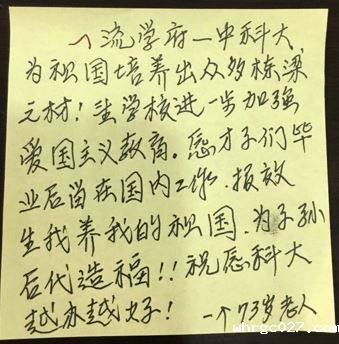 一流学府一中科大,
为祖国培养出众多栋梁
之材！望学校进一步加强
爱国主义教育。愿才子们毕
业后留在国内工作.报效
生我养我的祖国.为子孙
后代造福!!祝愿科大
越办越好!
一个73岁老人
whrgc027.com